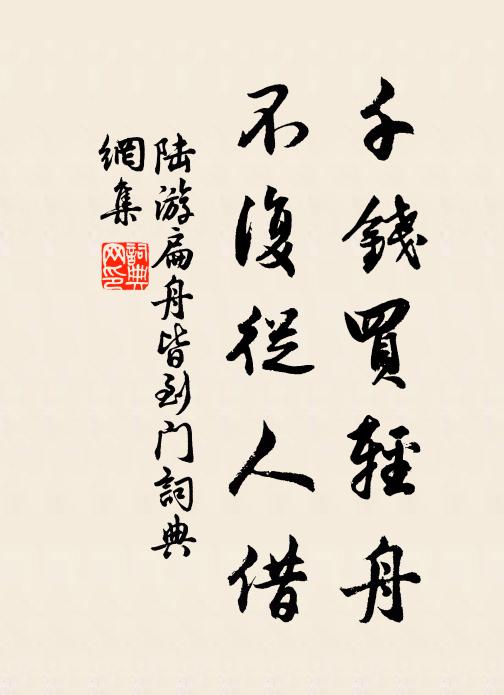 千錢買輕舟
不復從人借
陆游扁舟皆到门詞典
網集
詞典
网印